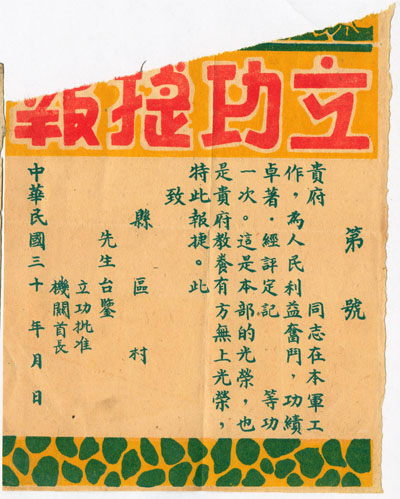 立功捷報
第　號
貴府　　　同志在本軍工
作，為人民利益奮鬥，功績
卓著．經評定記　　等功
一次。這是本部的光榮，也
是貴府教養有方無上光榮，
特此報捷。此
致
縣　區　村
先生台鑒
立功批准
機關首長
中華民國三十　年　月　日